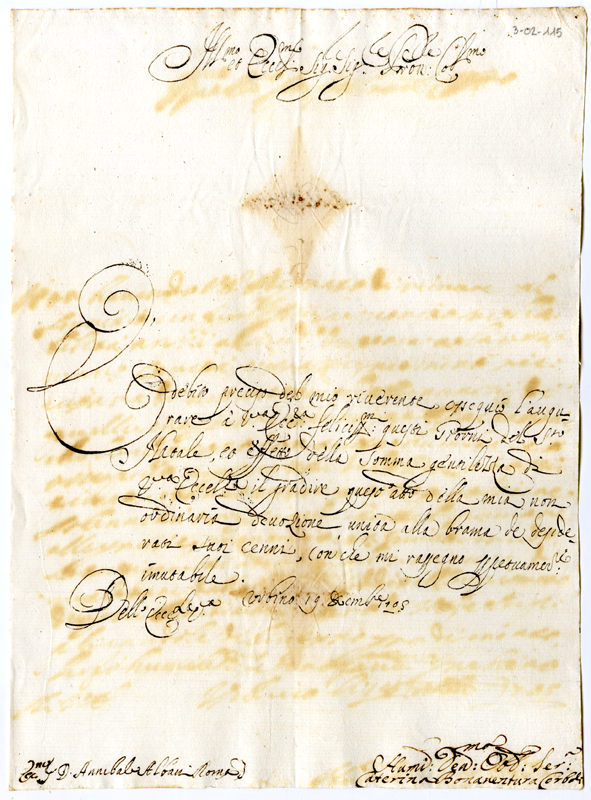 3-02-115
Ill.mo et Ecc.mo Sig.re Sig.re Pron: Col.mo
È debito preciso del mio riverente ossequio l'augu-
rare à V.ra Ecc.za feliciss.mi questi giorni del S.to
Natale, et effetto della somma gentilezza di
V.ra Eccell.za il gradire quest'atto della mia non
ordinaria devozione unita alla brama de deside
rati suoi cenni, con che mi rassegno
imutabile.
Dell'Ecc.za V.ra Urbino 19 Xcembre 1705
D. Annibale Albani Roma
Humil: Dev: Obb: Ser:
Caterina Bonaventura